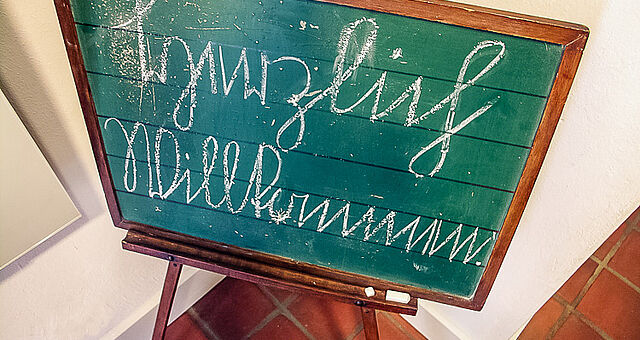 Herzlich
Willkommen.